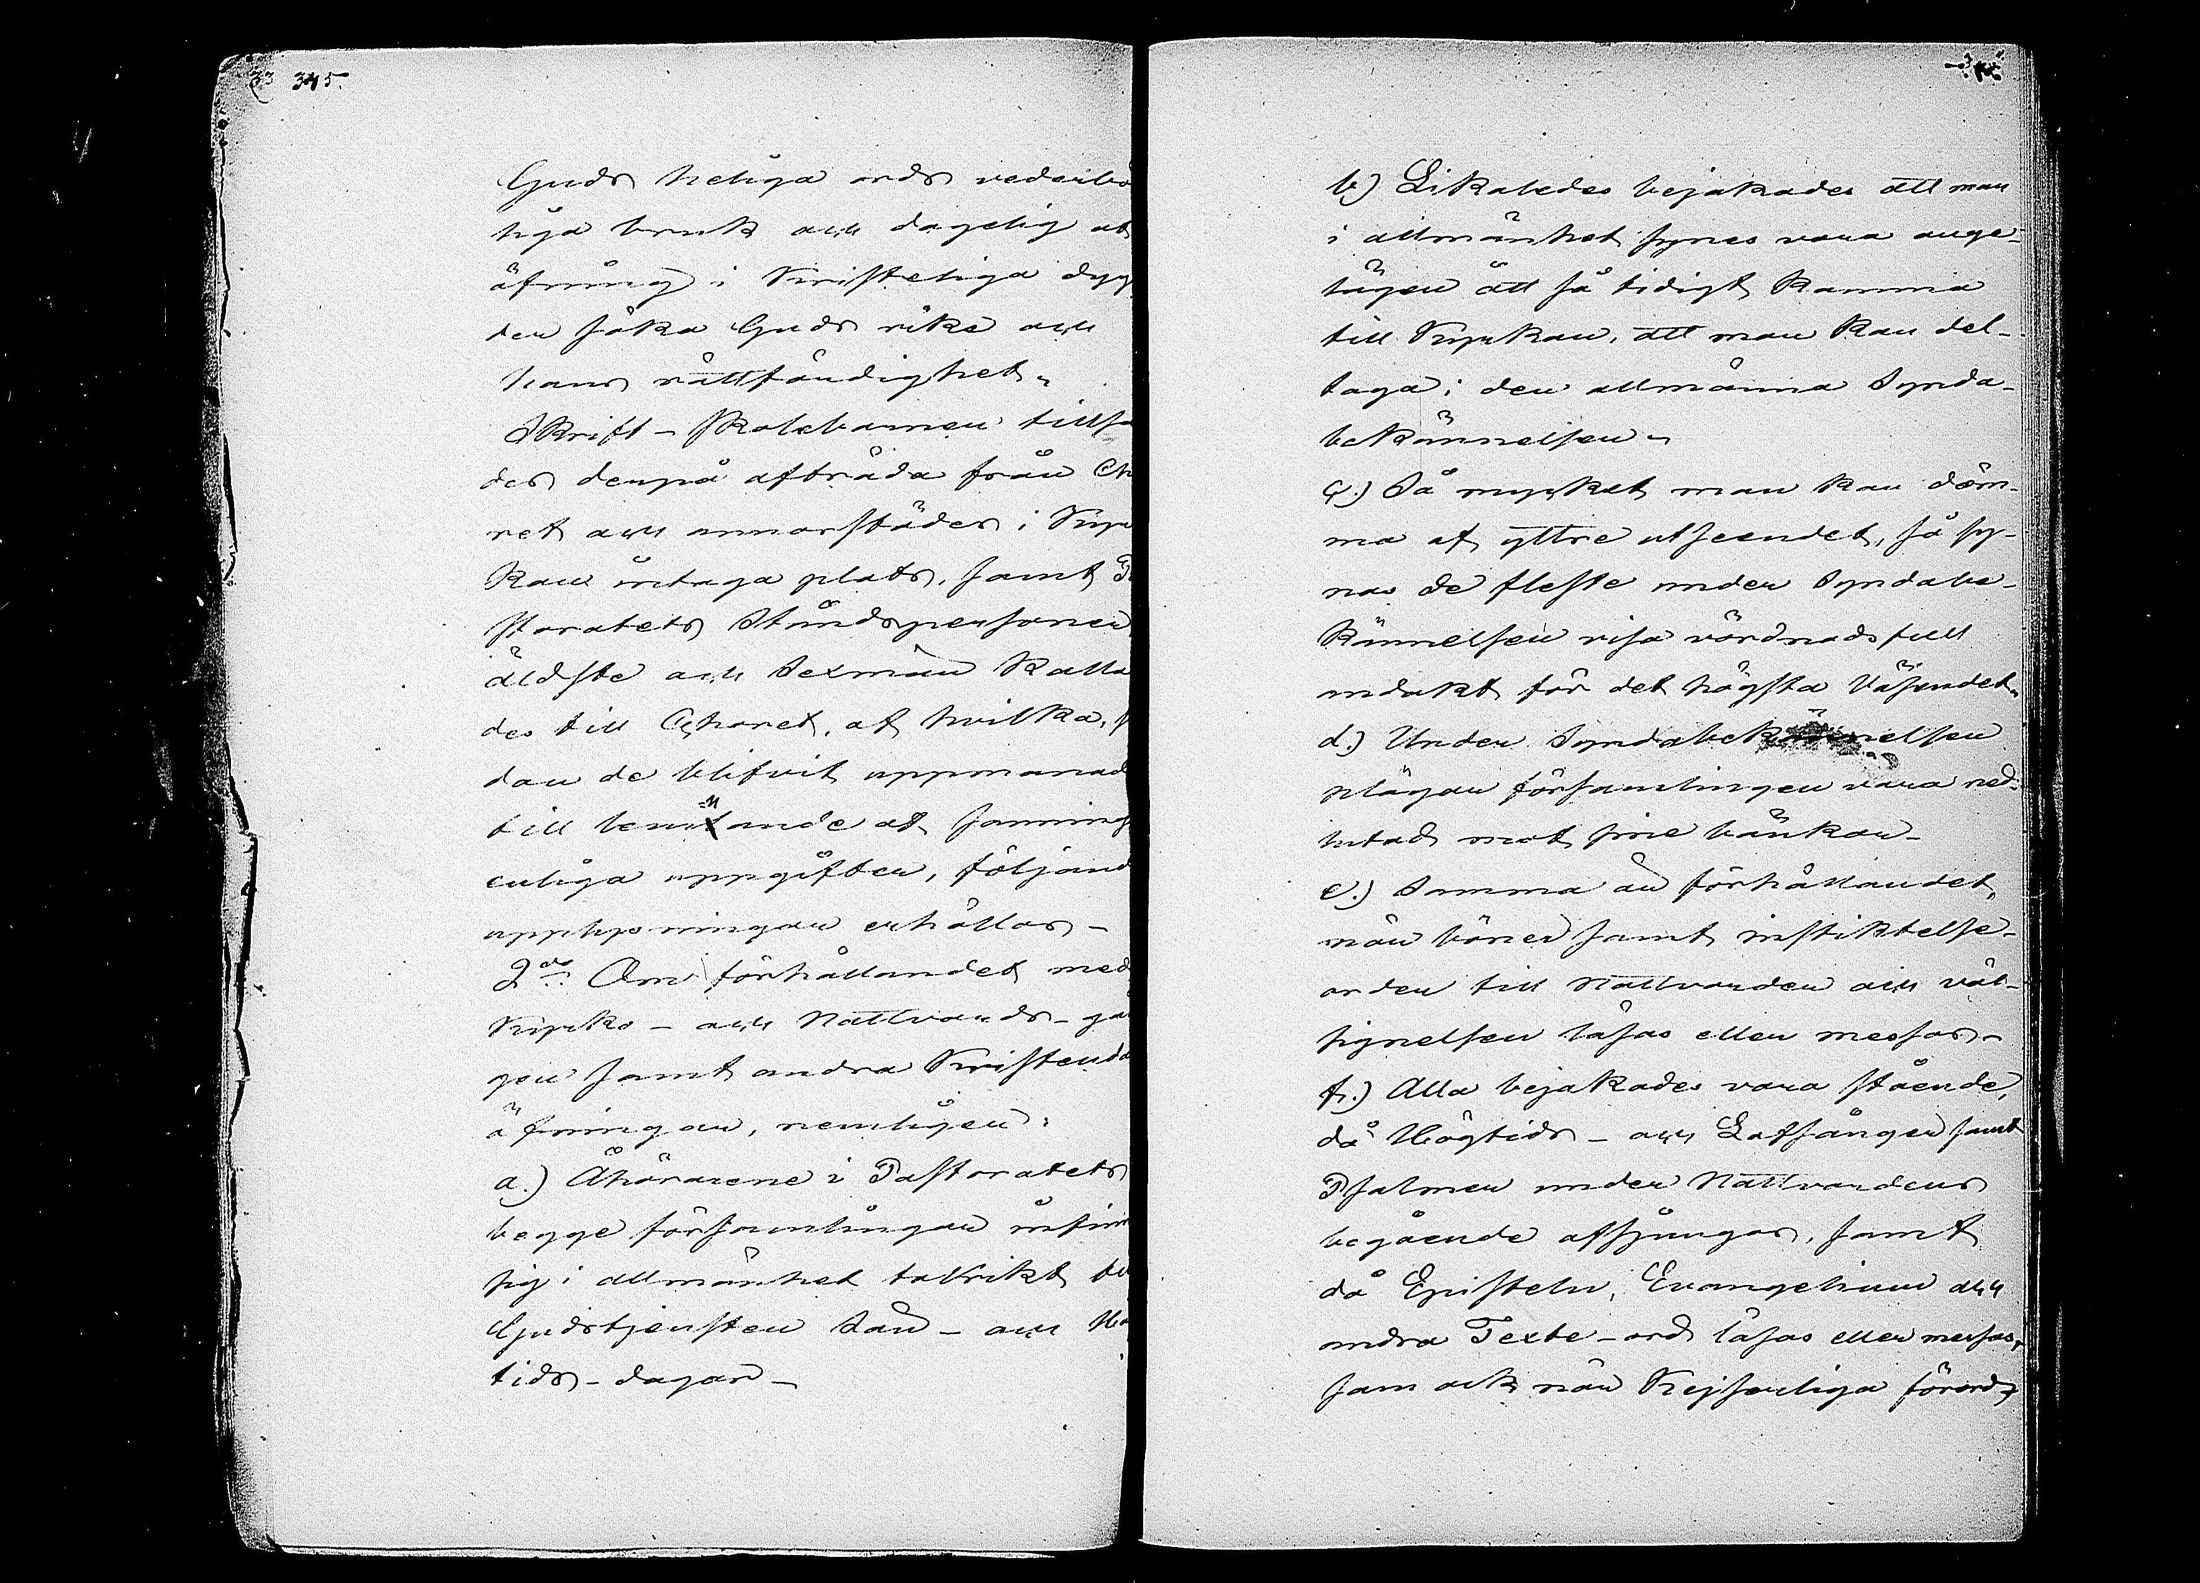 345.
Guds heliga ords vederbö
liga bruk och dagelig ut
öfning i Kristeliga dyg
der söka Guds rike och
hans rättfärdighet.
Skrift-skolebarnen tillsa
des derpå afträda från Cho
ret och annorstädes i Kyr
kan intaga plats, samt Pa
storatets Ståndspersoner
äldste och Sexmän kalla
des till Choret, af hvilka, s
dan de blifvit uppmanad
till lemnande af sannings
enliga uppgifter, följand
upplysningar erhållas -
2do Om förhållandet med
Kyrko - och Nattvards - gå
gen samt andra Kristendo
öfningar, nemligen:
a.) Åhörarene i Pastoratets
begge församlingar infin
sig i allmänhet talrikt til
Gudstjensten Sön - och Hö
tids - dagar -
b) Likaledes bejakades att man
i allmänhet synes vara ange-
lägen att så tidigt komma
till Kyrkan, att man kan del-
taga i den allmänna Synda-
bekännelsen -
c.) Så mycket man kan döm-
ma af yttre utseendet, så sy-
nas de fleste under Syndabe-
kännelsen visa vördnadsfull
andakt för det högsta Väsendet.
d.) Under Syndabekännelsen
plägar församlingen vara ned-
lutad mot sine bänkar -
e.) Samma är förhållandet,
när böner samt instiktelse-
orden till Nattvarden och väl-
signelsen läsas eller messas -
f.) Alla bejakades vara stående,
då Högtids - och Lofsånger samt
Psalmer under Nattvardens
begående afsjungas, samt
då Episteln, Evangelium och
andra Texte - ord läsas eller messas,
som ock när Kejserliga förord